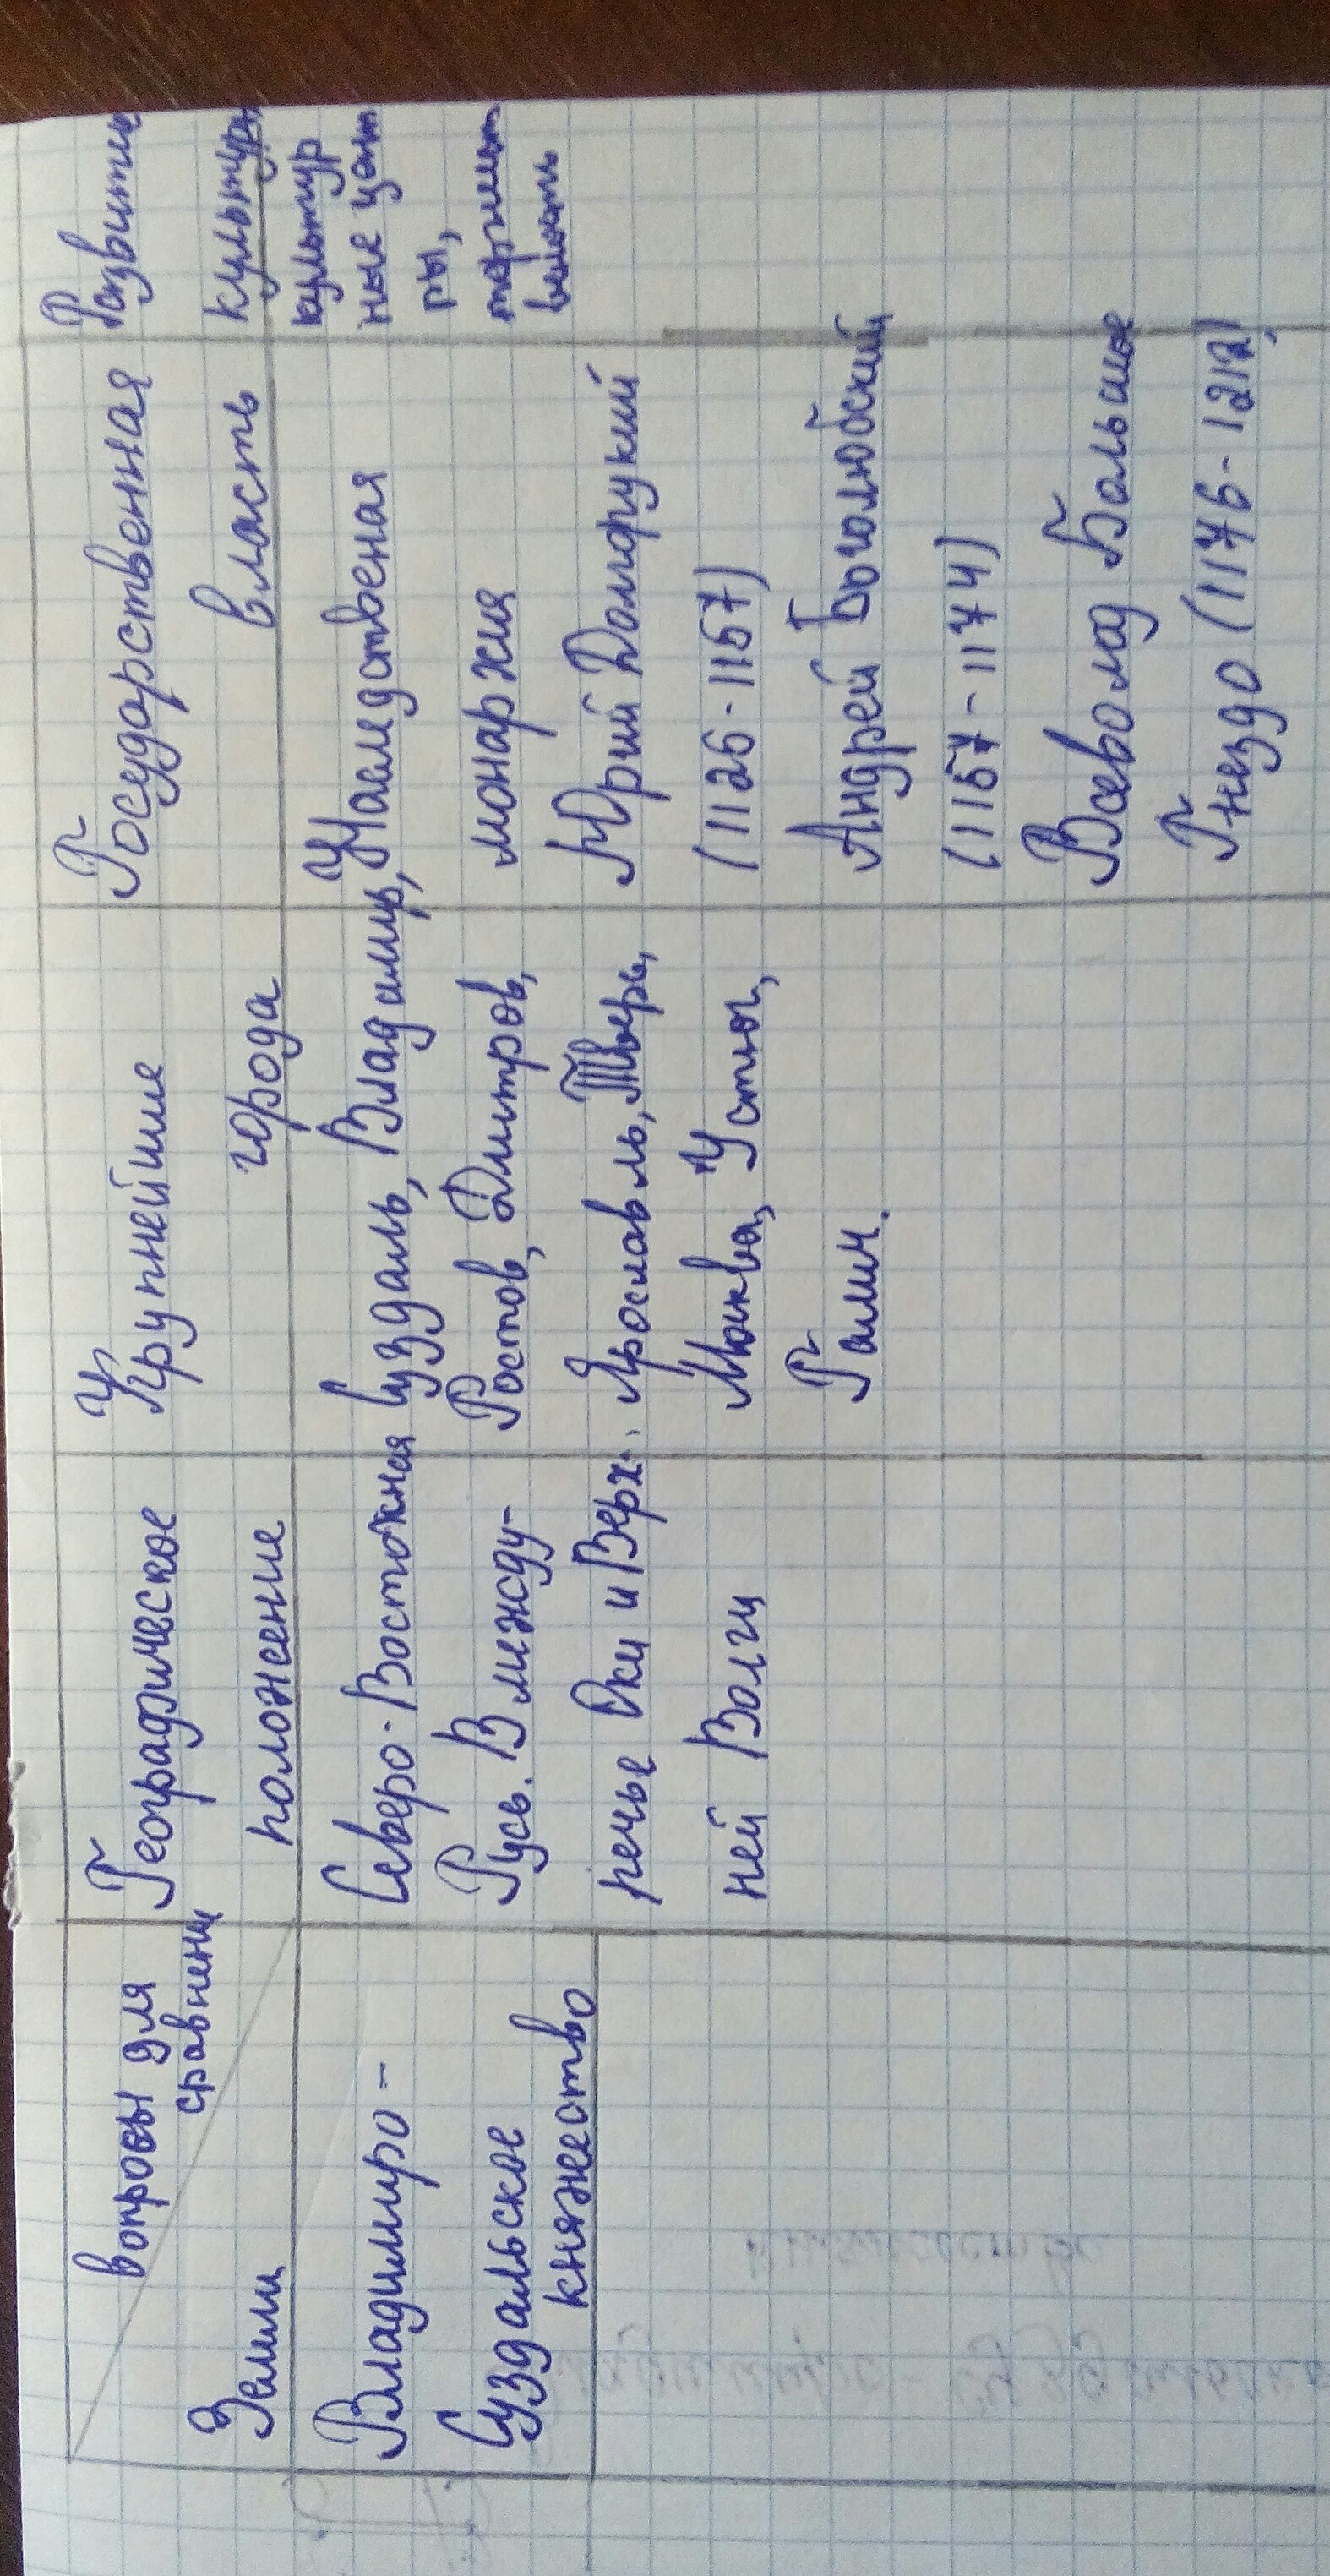 вопросы для
сравнени
Земли
Географическое
положение
Крупнейшие
города
Государственная
власть
Развитие
культуры
Владимиро-
Суздальское
княжество
Северо-Восточная
Русь. В между-
речье Оки и Верх-
ней Волги
Суздаль, Владимир,
Ростов, Дмитров,
Ярославль, Тверь,
Москва, Устюг,
Галич.
Наследственая
монархия
Юрий Долгрукий
(1125-1157)
Андрей Боголюбский
(1157-1174)
Всеволод Большое
Гнездо (1176-1212)
культур
ные цент
ры,